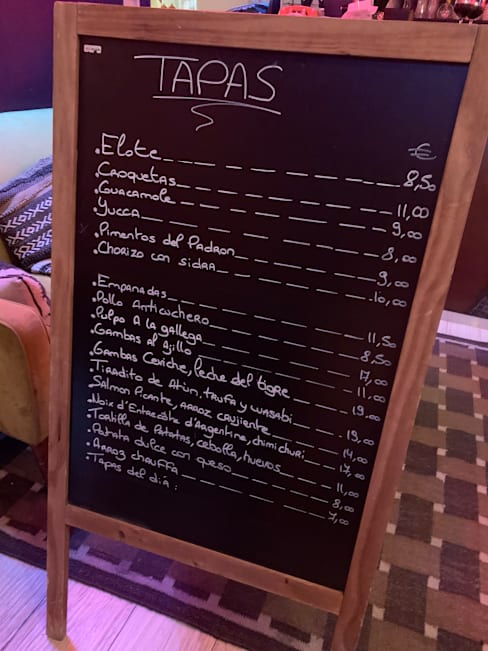 TAPAS
€
.Elote 8,50
.Croquetas 11,00
.Guacamole 9,00
.Yucca 8,00
.Pimentos del Padron 9,00
.Chorizo con sidra 10,00
.Empanadas 11,50
.Pollo Anticuchero 8,50
.Pulpo A la gallega 17,00
.Gambas Al Ajillo 11,00
.Gambas Ceviche, leche del tigre 19,00
.Tiradito de Atún, trufa y wasabi 19,00
.Salmon Picante, arroz crujiente 14,00
.Noix d'Entrecôte d'Argentine, chimichuri 17,00
.Tortilla de Patatas, cebolla, huevos 11,00
.Patata dulce con queso 8,00
.Arroz chauffa 7,00
.Tapas del dia :